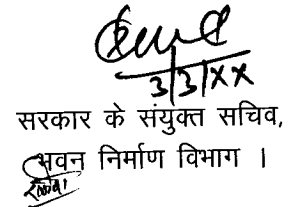 3/3/XX
सरकार के संयुक्त सचिव,
भवन निर्माण विभाग ।